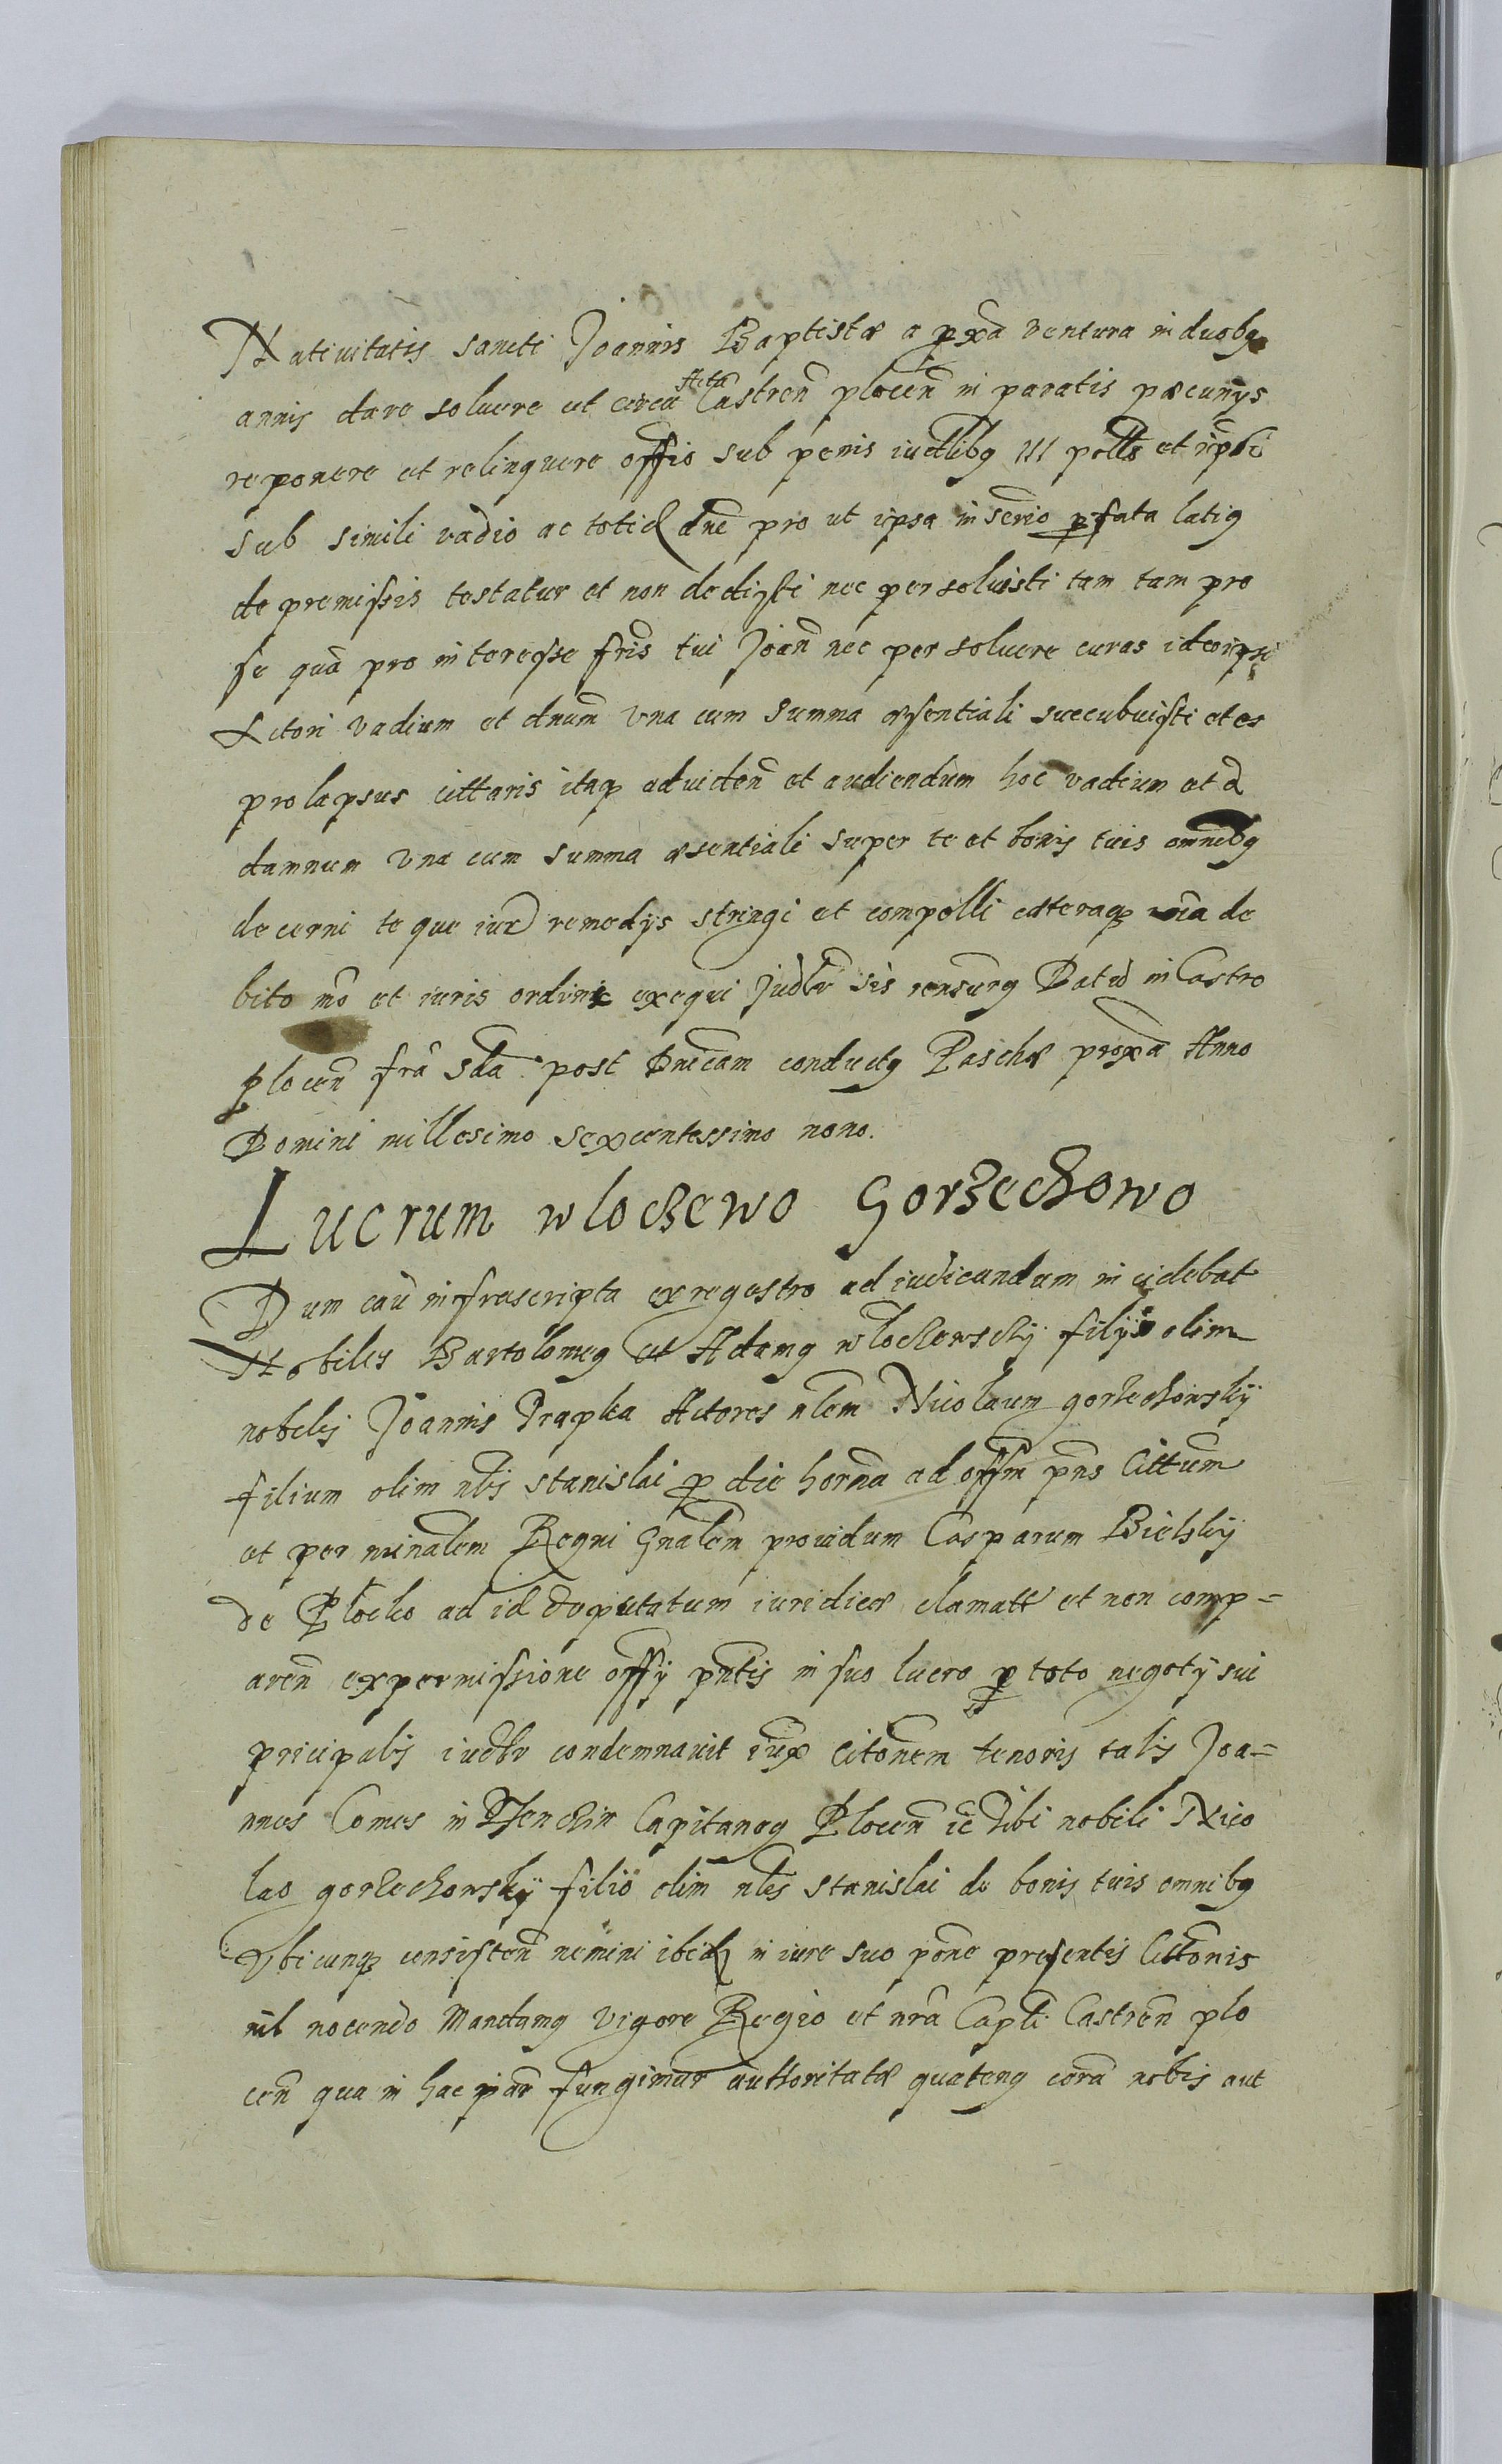 Natiuitatis sancti Joannis Baptistæ a pxa ventura in duobq
annis dare soluere et circa Acta Castren plocen in paratis pæcunijs
reponere et relinquere offio sub penis iudlibq III pells et ripbi
sub simili vadio ac totid dne pro ut ipsa inscrio pfata latiq
de premissis testatur et non dedisti nec persoluisti tam tam pro
se quã pro interesse fris tui Joan nec persoluere curas ideoq ipsi
Actori vadium et dnum vna cum summa essentiali succubuisti et es
prolapsus cittaris itaq ad viden et audiendum hoc vadium et d
damnum vna cum summa essentiali super te et bonis tuis omnibq
decerni te que iur remedijs stringi et compelli cæteraq de
bito mo et iuris ordine exequi Judlr sis rensurq Datũ in Castro
plocen fra Sda post Dnicam conductq Paschæ proxa Anno
Domini millesimo sexcentessimo nono.
Lucrum wloczewo Gorzechowo
Dum cau infrascripta ex regestro ad iudicandum incidebat
Nobiles Bartolomeq et Adamq wloczewsckij filij olim
nobilis Joannis Drapka Actores nlem Nicolaum gorzechowskij
filium olim nlis Stanislai p die horna ad offm pns Cittum
et per minalem Regni Gnalem prouidum Casparum Bielskij
de Plocko ad id deputatum iuridicæ clamatt et non comp=
aren ex permissione offij pntis in suo lucro p toto negotij sui
pricipalis iudlr condemnauit iux Citonem tenoris talis Joa=
nnes Comes in Capitaneq Plocen ic tibi nobili Nico
lao gorzechowskij filio olim nlis Stanislai de bonis tuis omnibq
Vbicunq consisten nemini ibid in iure suo pone presentis Cittonis
nil nocendo Mandamq vigore Regio et nra Capli Castren plo
cen qua in hac par fungimur authoritatæ quatenq cora nobis aut